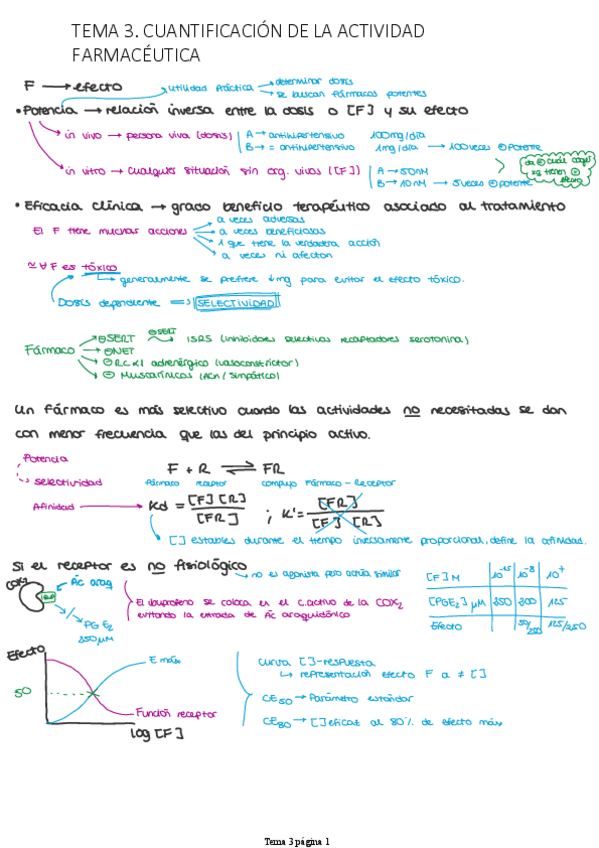 TEMA 3. CUANTIFICACIÓN DE LA ACTIVIDAD
FARMACÉUTICA
F → efecto
utilidad práctica → determinar dosis
→ se buscan fármacos potentes
• Potencia → relación inversa entre la dosis o [F] y su efecto
in vivo → persona viva (dosis) | A → antihipertensivo 100mg/día
B → = antihipertensivo 1mg/día → 100 veces ⊕ potente
in vitro → cualquier situación sin org. vivos ([F]) | A → 50nM
B → 10nM → 5 veces ⊕ potente
• Eficacia clínica → grado beneficio terapéutico asociado al tratamiento
El F tiene muchas acciones → a veces adversas
→ a veces beneficiosas
→ 1 que tiene la verdadera acción
→ a veces ni afectan
≃ ∀ F es tóxico
generalmente se prefiere ↓mg para evitar el efecto tóxico.
Dosis dependiente ⇒ SELECTIVIDAD
Fármaco → ⊖SERT ⊖SERT → ISRS (inhibidores selectivos receptadores serotonina)
→ ⊖NET
→ ⊖ Rc α1 adrenérgico (vasoconstrictor)
→ ⊖ Muscarínicos (Ach / simpático)
Un fármaco es más selectivo cuando las actividades no necesitadas se dan
con menor frecuencia que las del principio activo.
Potencia
selectividad
F + R ⇌ FR
fármaco receptor complejo Fármaco - Receptor
Afinidad → Kd = [F] [R] / [FR] ; K' = [FR] / [F] [R]
[ ] estables durante el tiempo inversamente proporcional, define la afinidad.
Si el receptor es no fisiológico → no es agonista pero actúa similar
COX2
Ác araq
PGE2
250 μM
El ibuprofeno se coloca en el c.activo de la COX2
evitando la entrada de Ác araquidónico
[F] M
[PGE2] μM 250 200 125
Efecto 50/250 125/250
Efecto
50
E máx
Función receptor
log [F]
Curva [ ]-respuesta
↳ representación efecto F a ≠ [ ]
CE50 → Parámetro estándar
CE80 → [ ] eficaz al 80% de efecto máx
Tema 3 página 1